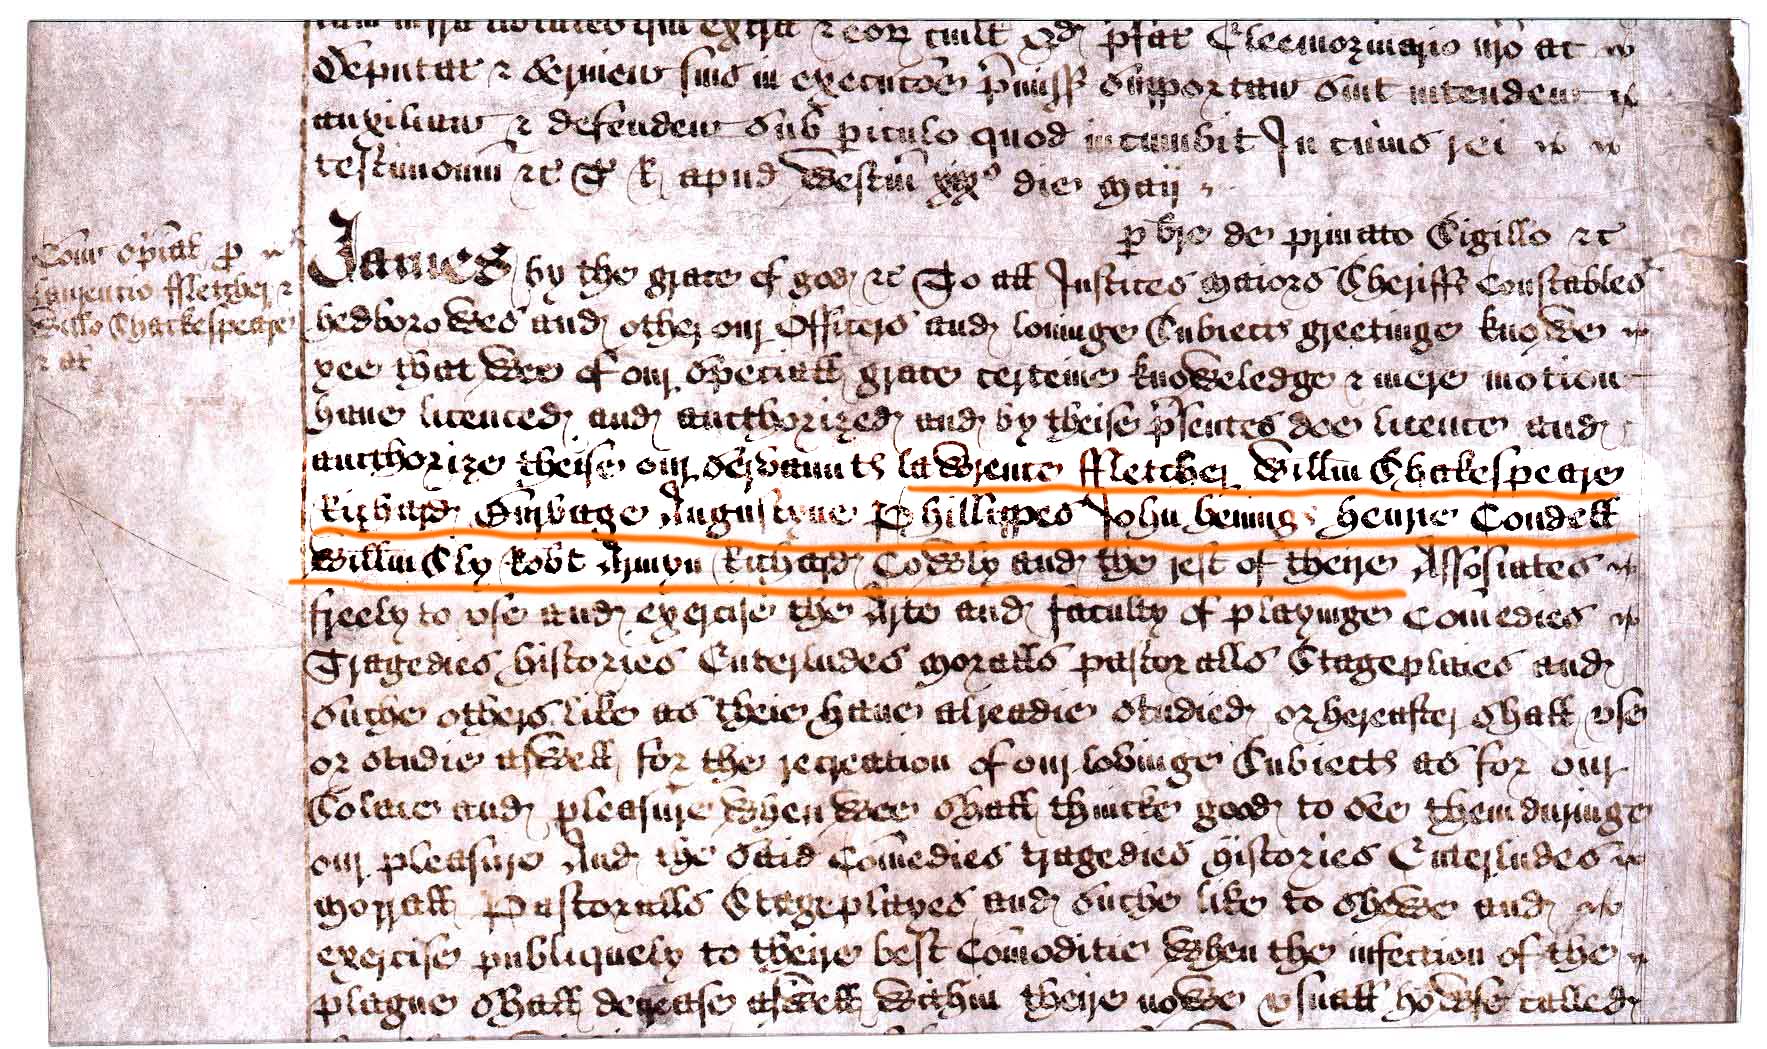 Deputat & servien suis in execucõe p̃miss supportan sint intenden
auxilian & defenden sub piculo quod incumbit In cuius rei
testimoniũ &c T R apud Westm̃ xixº die Maij
p bre de privato Sigillo &c
Com̃ sp̃ial p
Laurentio Fletcher &
Willo Shackespeare
& al
James by the grace of god &c To all Justices Maiors Sheriffs Constables
hedborowes and other our Officers and lovinge Subiects greetinge knowe
yee that wee of our speciall grace certeine knoweledge & mere motion
have licenced and aucthorized and by theise p̃sentes doe licence and
aucthorize theise our servaunts lawrence ffletcher Willm̃ Shakespeare
Richard Burbage Augustyne Phillippes John henings henrie Condell
Willm̃ Sly Robt Armyn Richard Cowly and the rest of theire Assosiates
freely to use and exercise the Arte and faculty of playinge Com̃edies
Tragedies histories Enterludes moralls pastoralls Stageplaies and
suche others like as theie have alreadie studied or hereafter shall use
or studie aswell for the recreation of our lovinge Subiects as for our
Solace and pleasure when wee shall thincke good to see them duringe
our pleasure And the said Com̃edies tragedies histories Enterludes
Morrall Pastoralls Stageplayes and suche like to showe and
exercise publiquely to theire best Com̃oditie when the infection of the
plague shall decrease aswell within theire nowe usuall howse called